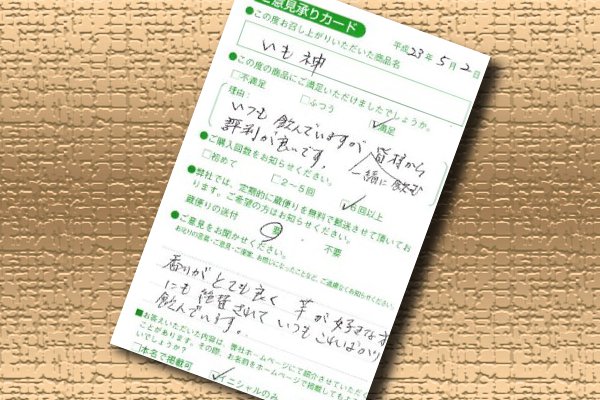 ご意見承りカード
平成23年5月2日
●この度お召し上がりいただいた商品名
いも神
●この度の商品にご満足いただけましたでしょうか。
□不満足 □ふつう ☑満足
理由:
いつも飲んでいますが 皆様から
一緒に飲む
評判が良いです。
●ご購入回数をお知らせください。
□初めて □2～5回 ☑6回以上
●弊社では、定期的に蔵便りを無料で郵送させて頂いてお
ります。ご希望の方はお知らせください。
蔵便りの送付 要 ・ 不要
●ご意見をお聞かせください。
香りがとても良く 芋が好きな方
にも絶賛されて いつもこればかり
飲んでいます。
■お答えいただいた内容は、弊社ホームページにて紹介させていただ
ことがあります。その際、お名前をホームページで掲載してもよ
いでしょうか?
□本名で掲載可 ☑イニシャルのみ